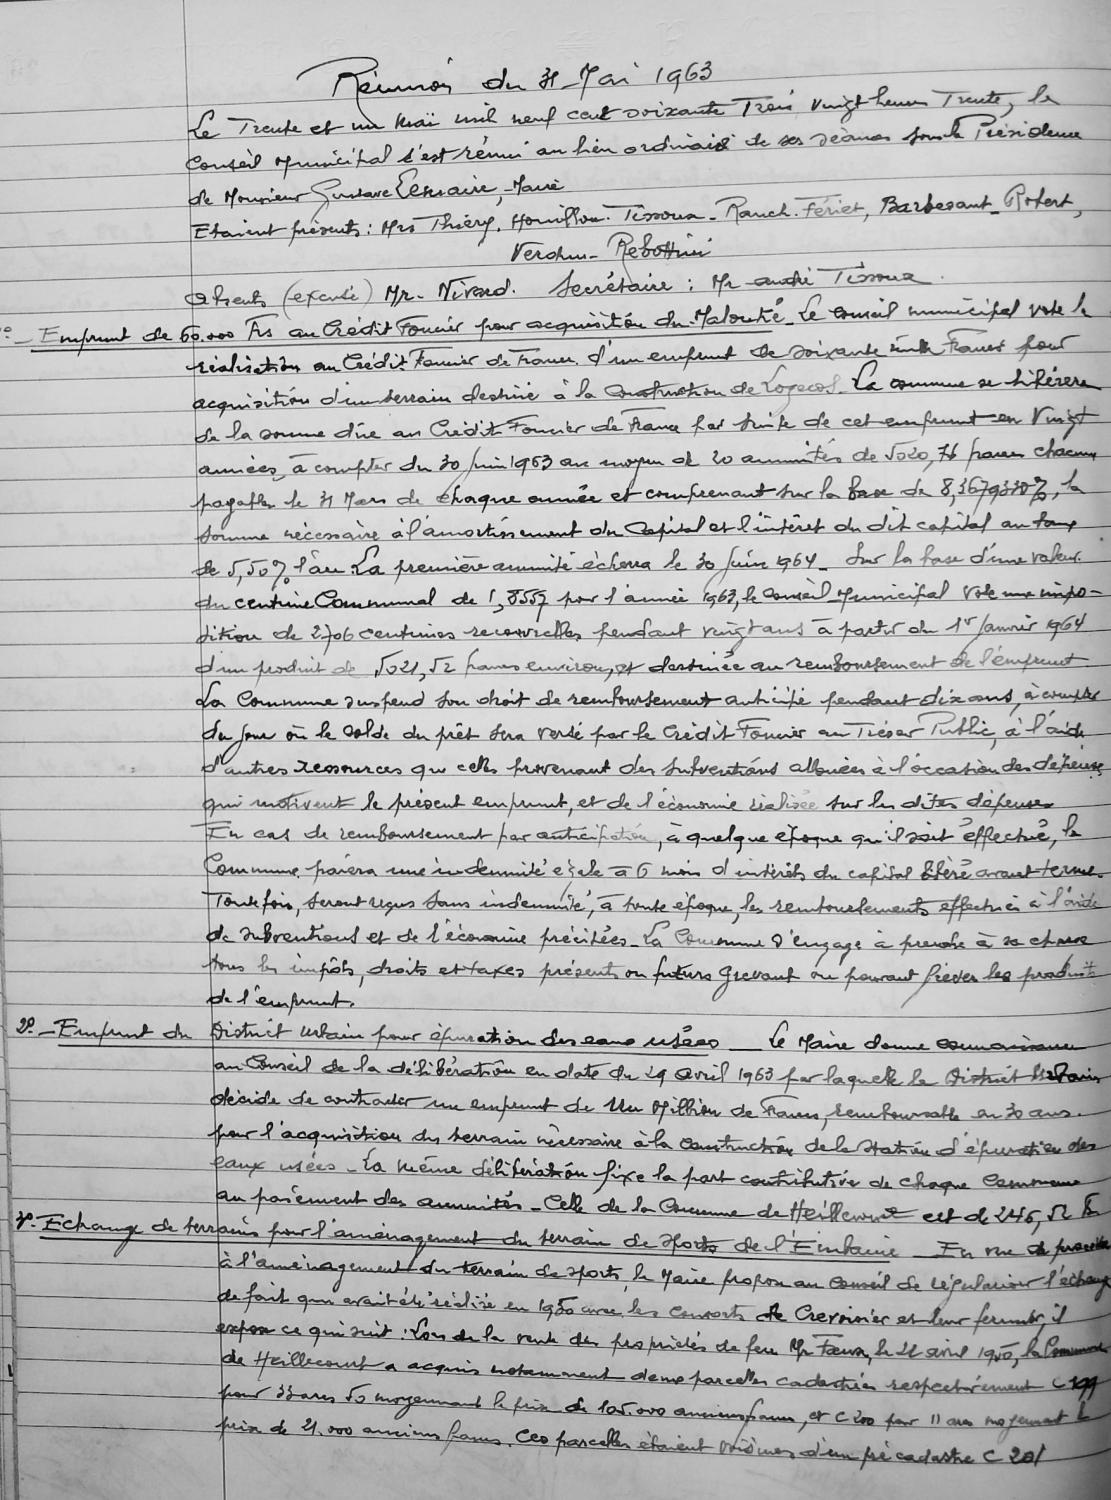 Réunion du 31 Mai 1963
Le Trente et un Mai mil neuf cent soixante Trois vingt heures Trente, le
Conseil Municipal s'est réuni au lieu ordinaire de ses séances sous la Présidence
de Monsieur Gustave Lemaire, Maire
Etaient présents : Mrs Thiéry. Houillon. Tissoux - Ranch. Fériet, Barbesant - Robert,
Verdun - Rebottini
Absents (excusé) Mr. Nivard. Secrétaire : Mr andré Tissoux.
1° - Emprunt de 60.000 Frs au Crédit Foncier pour acquisition du Malouté - Le Conseil municipal vote la
réalisation au Crédit Foncier de France d'un emprunt de soixante mille Francs pour
acquisition d'un terrain destiné à la construction de Logecos. La commune se libérera
de la somme dûe au Crédit Foncier de France par suite de cet emprunt en Vingt
années, à compter du 30 Juin 1963 au moyen de 20 annuités de 5020,76 francs chacune
payables le 31 Mars de chaque année et comprenant sur la base de 8,3679330%, la
somme nécessaire à l'amortissement du Capital et l'intérêt du dit capital au taux
de 5,50% l'an La première annuité écherra le 30 Juin 1964 - Sur la base d'une valeur
du centime Communal de 1,8557 pour l'année 1963, le Conseil Municipal Vote une impo-
sition de 2706 centimes recouvrables pendant vingt ans à partir du 1er Janvier 1964
d'un produit de 5021,52 francs environ, et destinée au remboursement de l'emprunt
La Commune suspend son droit de remboursement anticipé pendant dix ans, à compter
du jour où le solde du prêt sera versé par le Crédit Foncier au Trésor Public, à l'aide
d'autres ressources que celles provenant des subventions allouées à l'occasion des dépenses
qui motivent le présent emprunt, et de l'économie réalisée sur les dites dépenses
En cas de remboursement par anticipation, à quelque époque qu'il soit effectué, la
Commune paiera une indemnité égale à 6 mois d'intérêts du capital libéré avant terme.
Toutefois, seront reçus sans indemnité, à toute époque, les remboursements effectués à l'aide
de subventions et de l'économie précitées - La Commune s'engage à prendre à sa charge
tous les impôts, droits et taxes présents ou futurs grevant ou pouvant grever les produits
de l'emprunt.
2° - Emprunt du District Urbain pour épuration des eaux usées - Le Maire donne connaissance
au Conseil de la délibération en date du 29 Avril 1963 par laquelle le District Urbain
décide de contracter un emprunt de Un Million de Francs, remboursable en 30 ans.
pour l'acquisition du terrain nécessaire à la construction de la station d'épuration des
eaux usées - La même délibération fixe la part contributive de chaque Commune
au paiement des annuités - Celle de la Commune de Heillecourt est de 246,52 Frs
3° - Echange de terrains pour l'aménagement du terrain de sports de l'Embanie - En vue de procéder
à l'aménagement du terrain de sports, le Maire propose au Conseil de régulariser l'échange
de fait qui avait été réalisé en 1950 avec les consorts de Crevoisier et leur fermier, il
expose ce qui suit : Lors de la vente des propriétés de feu Mr Faux, le 22 avril 1950, la Commune
de Heillecourt a acquis notamment deux parcelles cadastrées respectivement C 199
pour 33 ares 50 moyennant le prix de 105.000 anciens francs, et C 200 pour 11 ares moyennant le
prix de 21.000 anciens francs. Ces parcelles étaient voisines d'un pré cadastré C 201